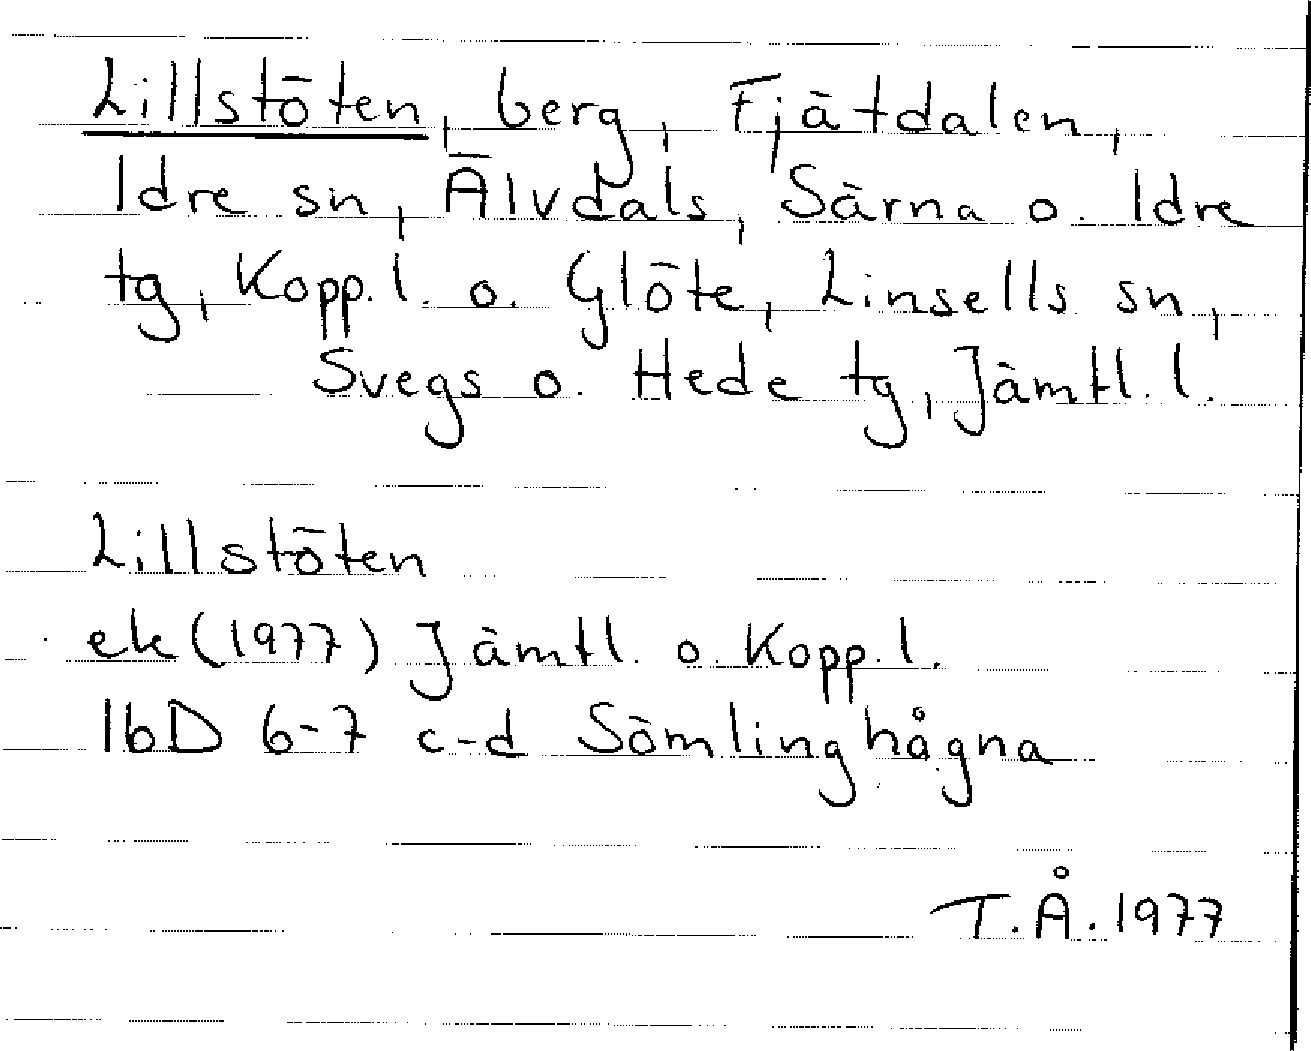 Lillstöten, berg, Fjätdalen,
Idre sn, Älvdals, Särna o. Idre
tg, Kopp. l. o. Glöte, Linsells sn,
Svegs o. Hede tg, Jämtl. l.
Lillstöten
ek (1977) Jämtl. o. Kopp. l.
16D 6-7 c-d Sömlinghågna
T.Å. 1977